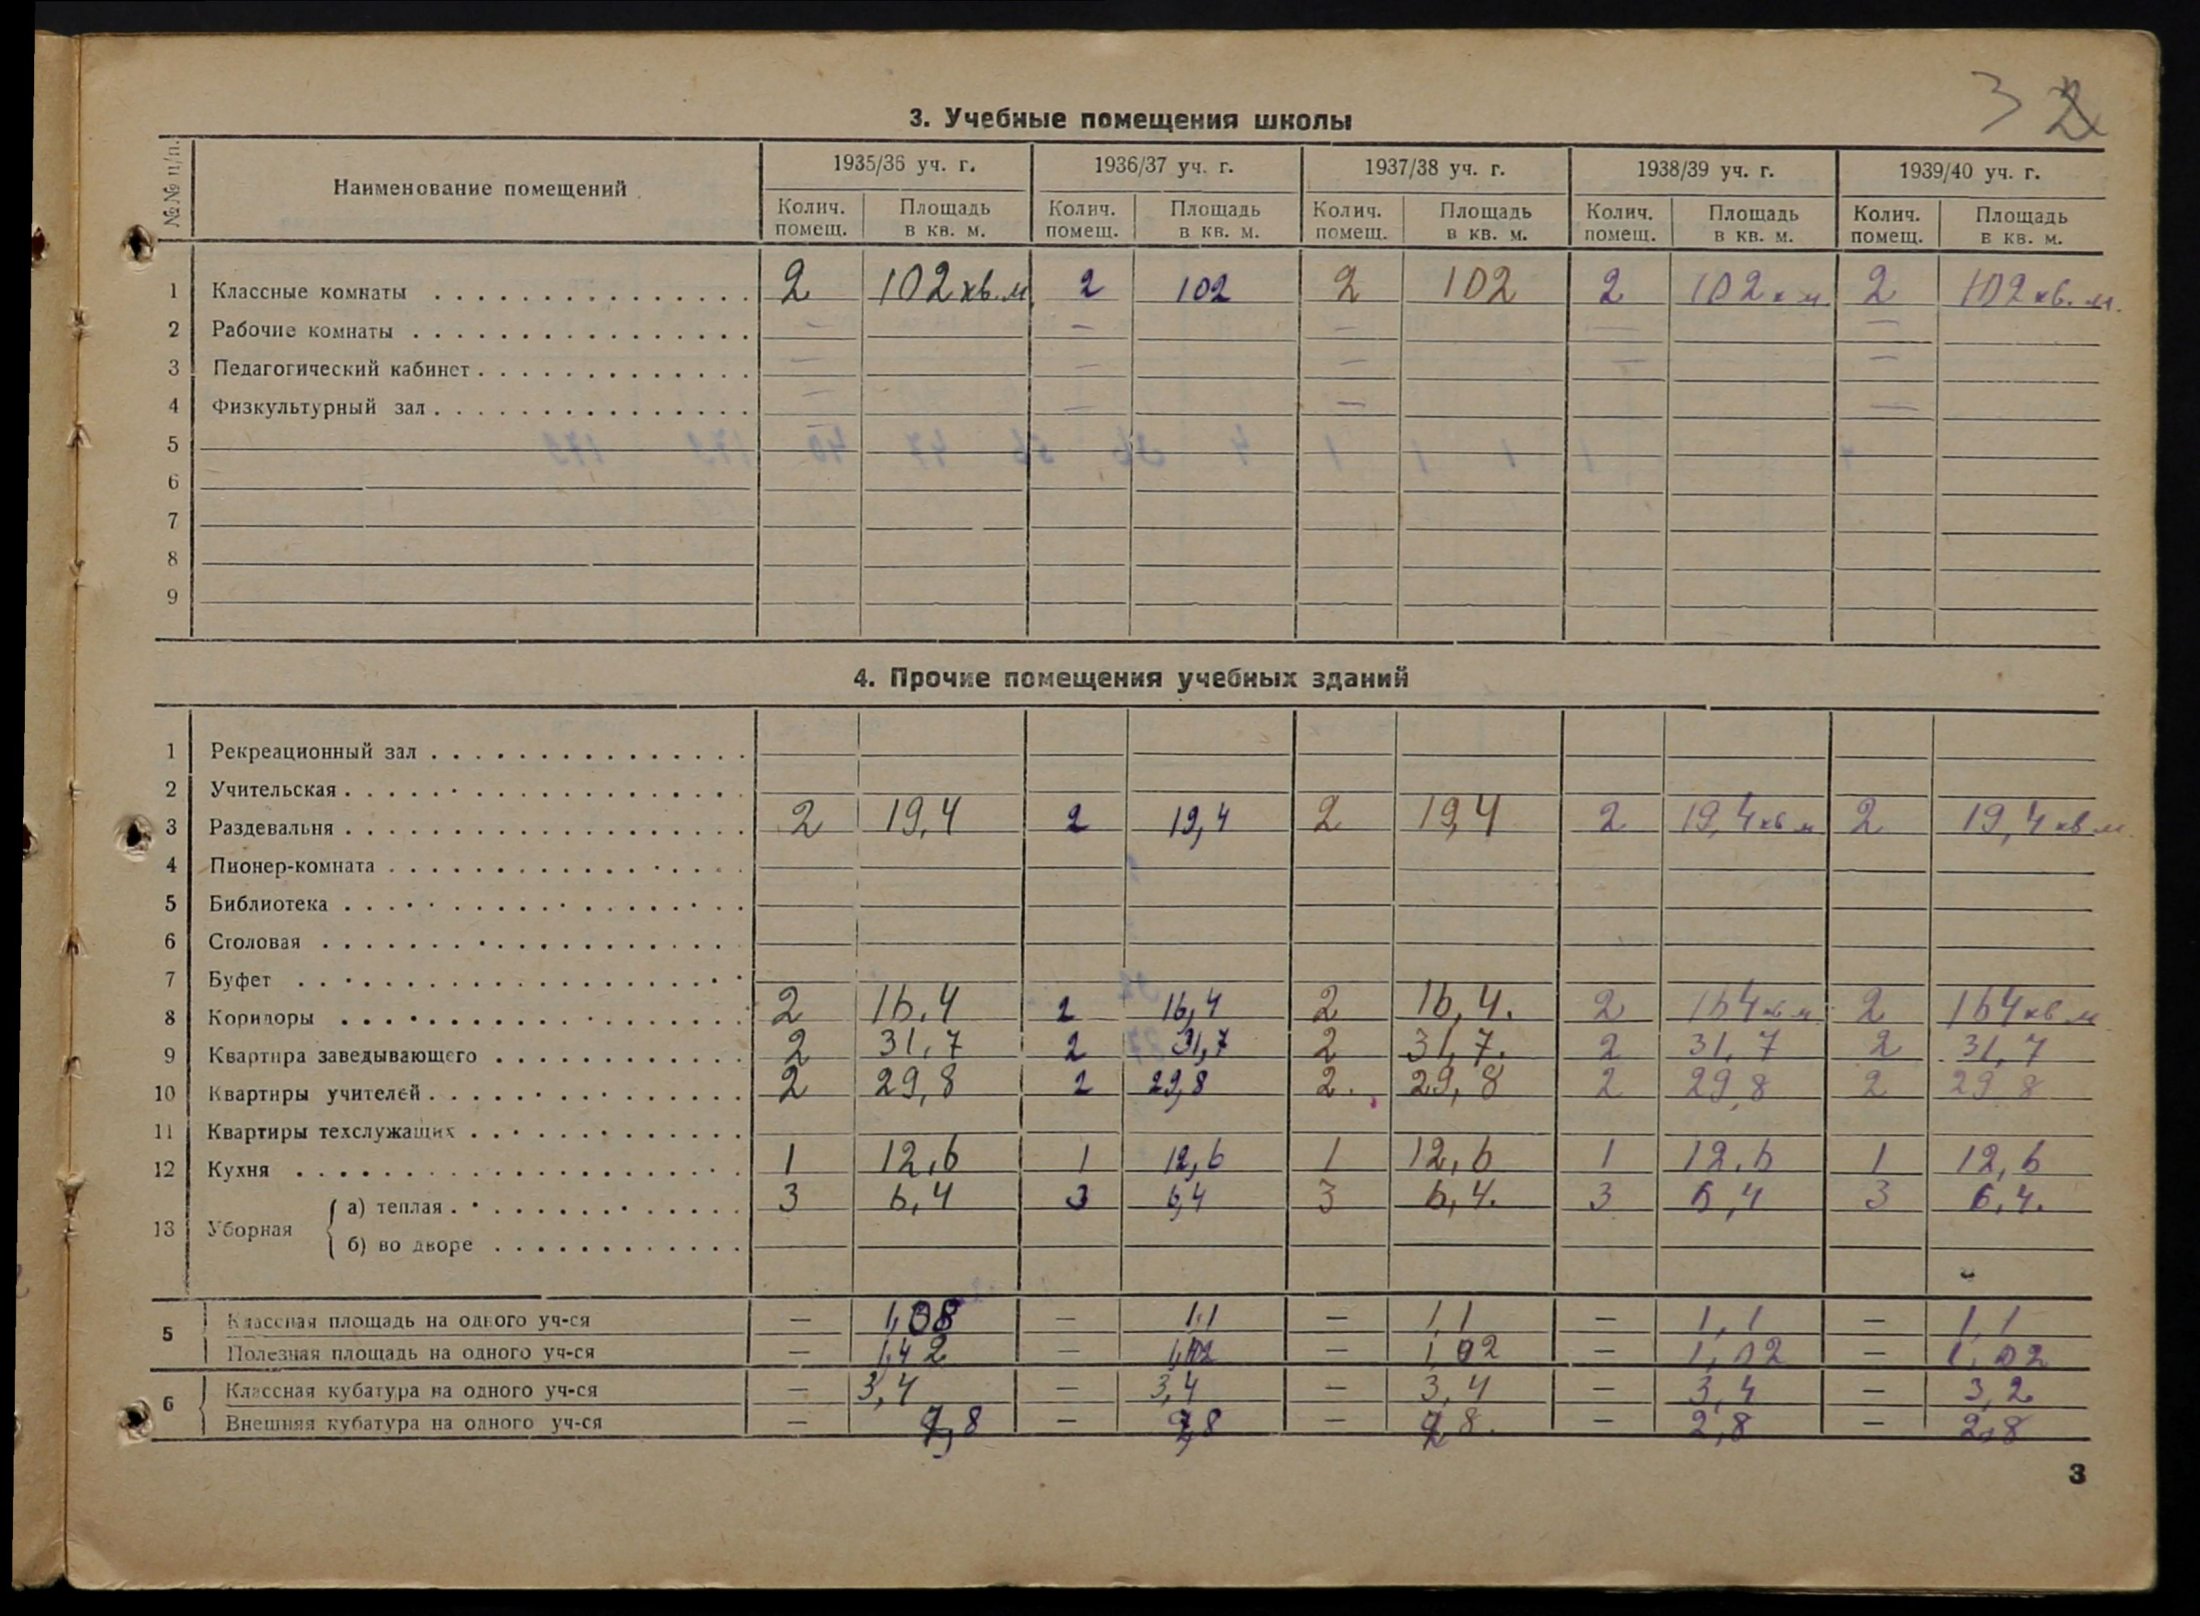 3 2
3. Учебные помещения школы
№№ п/п. Наименование помещений 1935/36 уч. г. 1936/37 уч. г. 1937/38 уч. г. 1938/39 уч. г. 1939/40 уч. г.
Колич. помещ. Площадь в кв. м. Колич. помещ. Площадь в кв. м. Колич. помещ. Площадь в кв. м. Колич. помещ. Площадь в кв. м. Колич. помещ. Площадь в кв. м.
1 Классные комнаты 2 102 кв.м 2 102 2 102 2 102 к м 2 102 кв. м.
2 Рабочие комнаты — — — — —
3 Педагогический кабинет — — — — —
4 Физкультурный зал — — — —
5 —
6
7
8
9
4. Прочие помещения учебных зданий
1 Рекреационный зал
2 Учительская
3 Раздевальня 2 19,4 2 19,4 2 19,4 2 19,4 кв м 2 19,4 кв м
4 Пионер-комната
5 Библиотека
6 Столовая
7 Буфет
8 Коридоры 2 16.4 2 16,4 2 16,4. 2 16 4 кв м 2 16 4 кв м
9 Квартира заведывающего 2 31,7 2 31,7 2 31,7. 2 31,7 2 31,7
10 Квартиры учителей 2 29,8 2 29,8 2. 29,8 2 29,8 2 29 8
11 Квартиры техслужащих
12 Кухня 1 12,6 1 12,6 1 12,6 1 12,6 1 12,6
13 Уборная а) теплая 3 6,4 3 6,4 3 6,4. 3 6,4 3 6,4.
б) во дворе
5 Классная площадь на одного уч-ся — 1,08 — 1,1 — 1,1 — 1,1 — 1,1
Полезная площадь на одного уч-ся — 1,42 — 1,02 — 1,02 — 1,02 — 1,02
6 Классная кубатура на одного уч-ся — 3,4 — 3,4 — 3,4 — 3,4 — 3,2
Внешняя кубатура на одного уч-ся — — — — 2,8 — 2,8
3